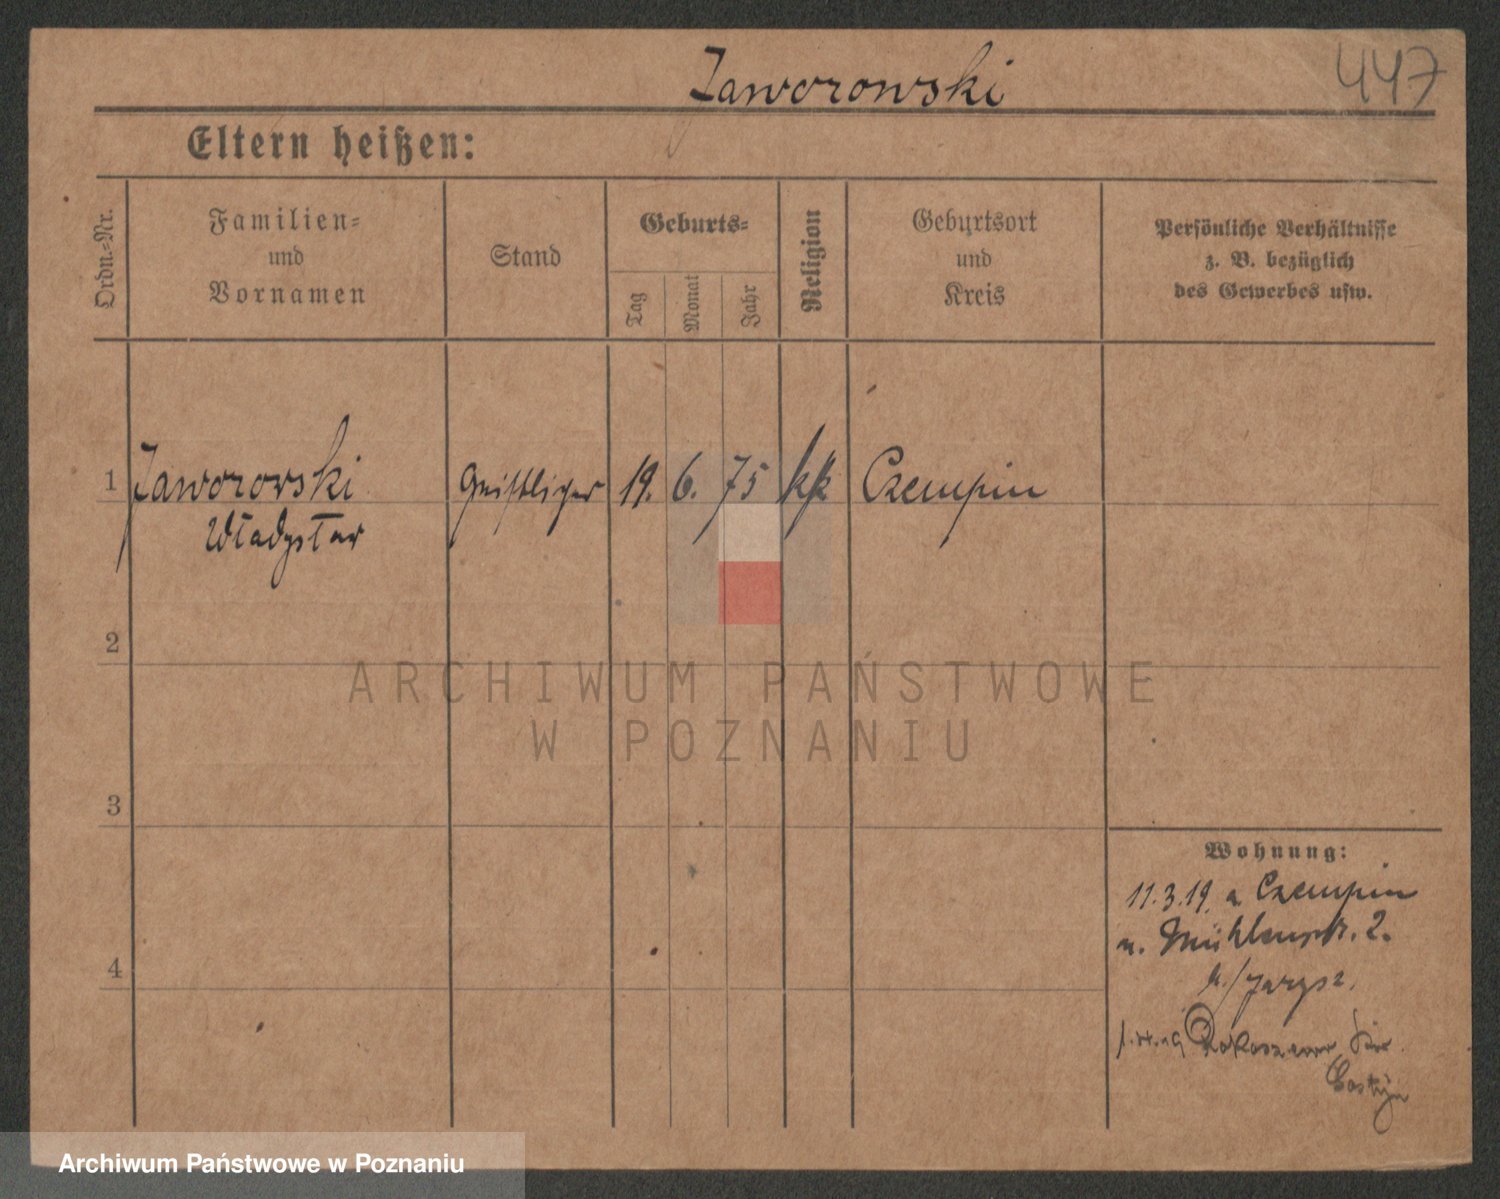 Jaworowski
447
Eltern heißen:
Ordn.-Nr.
Familien-
und
Vornamen
Stand
Geburts-
Tag
Monat
Jahr
Religion
Geburtsort
und
Kreis
Persönliche Verhältnisse
z. B. bezüglich
des Gewerbes usw.
1
Jaworowski
Władysław
Geistlicher
19.
6.
75
kk
Czempin
2
3
4
Wohnung:
11.3.19. a. Czempin
n. Mühlenstr. 2.
b/ Jarysz.
Kr.
Gostyn
ARCHIWUM PAŃSTWOWE
W POZNANIU
Archiwum Państwowe w Poznaniu